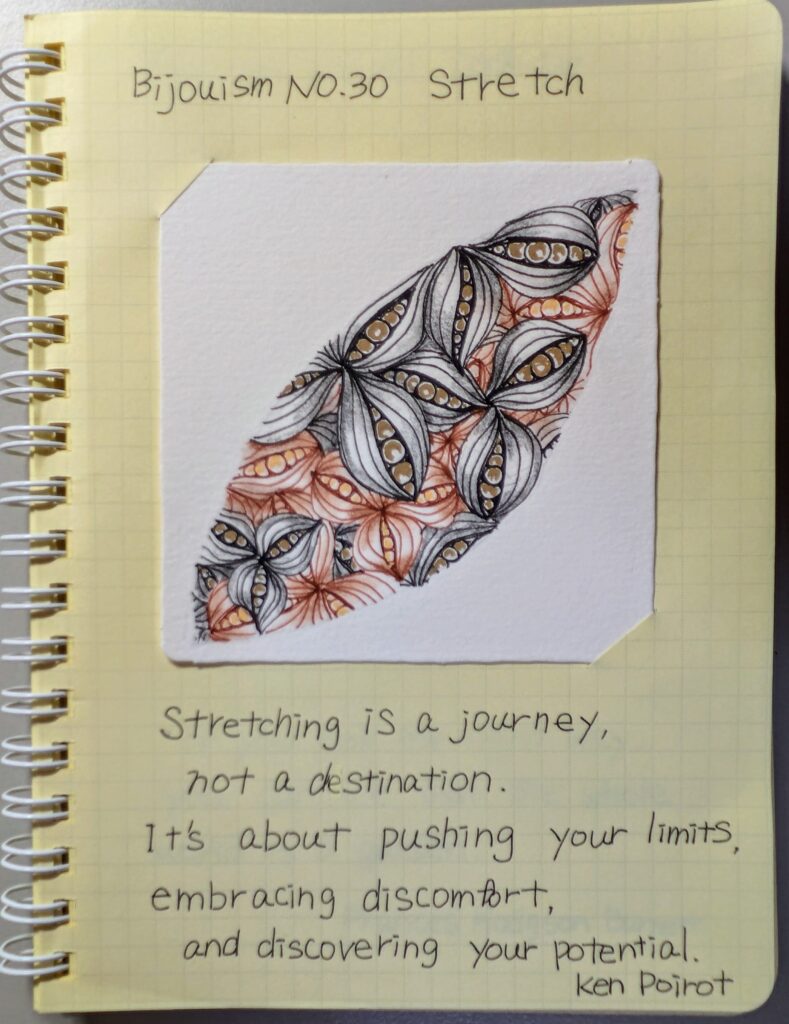 Bijouism NO.30 Stretch
Stretching is a journey,
not a destination.
It's about pushing your limits,
embracing discomfort,
and discovering your potential.
Ken Poirot